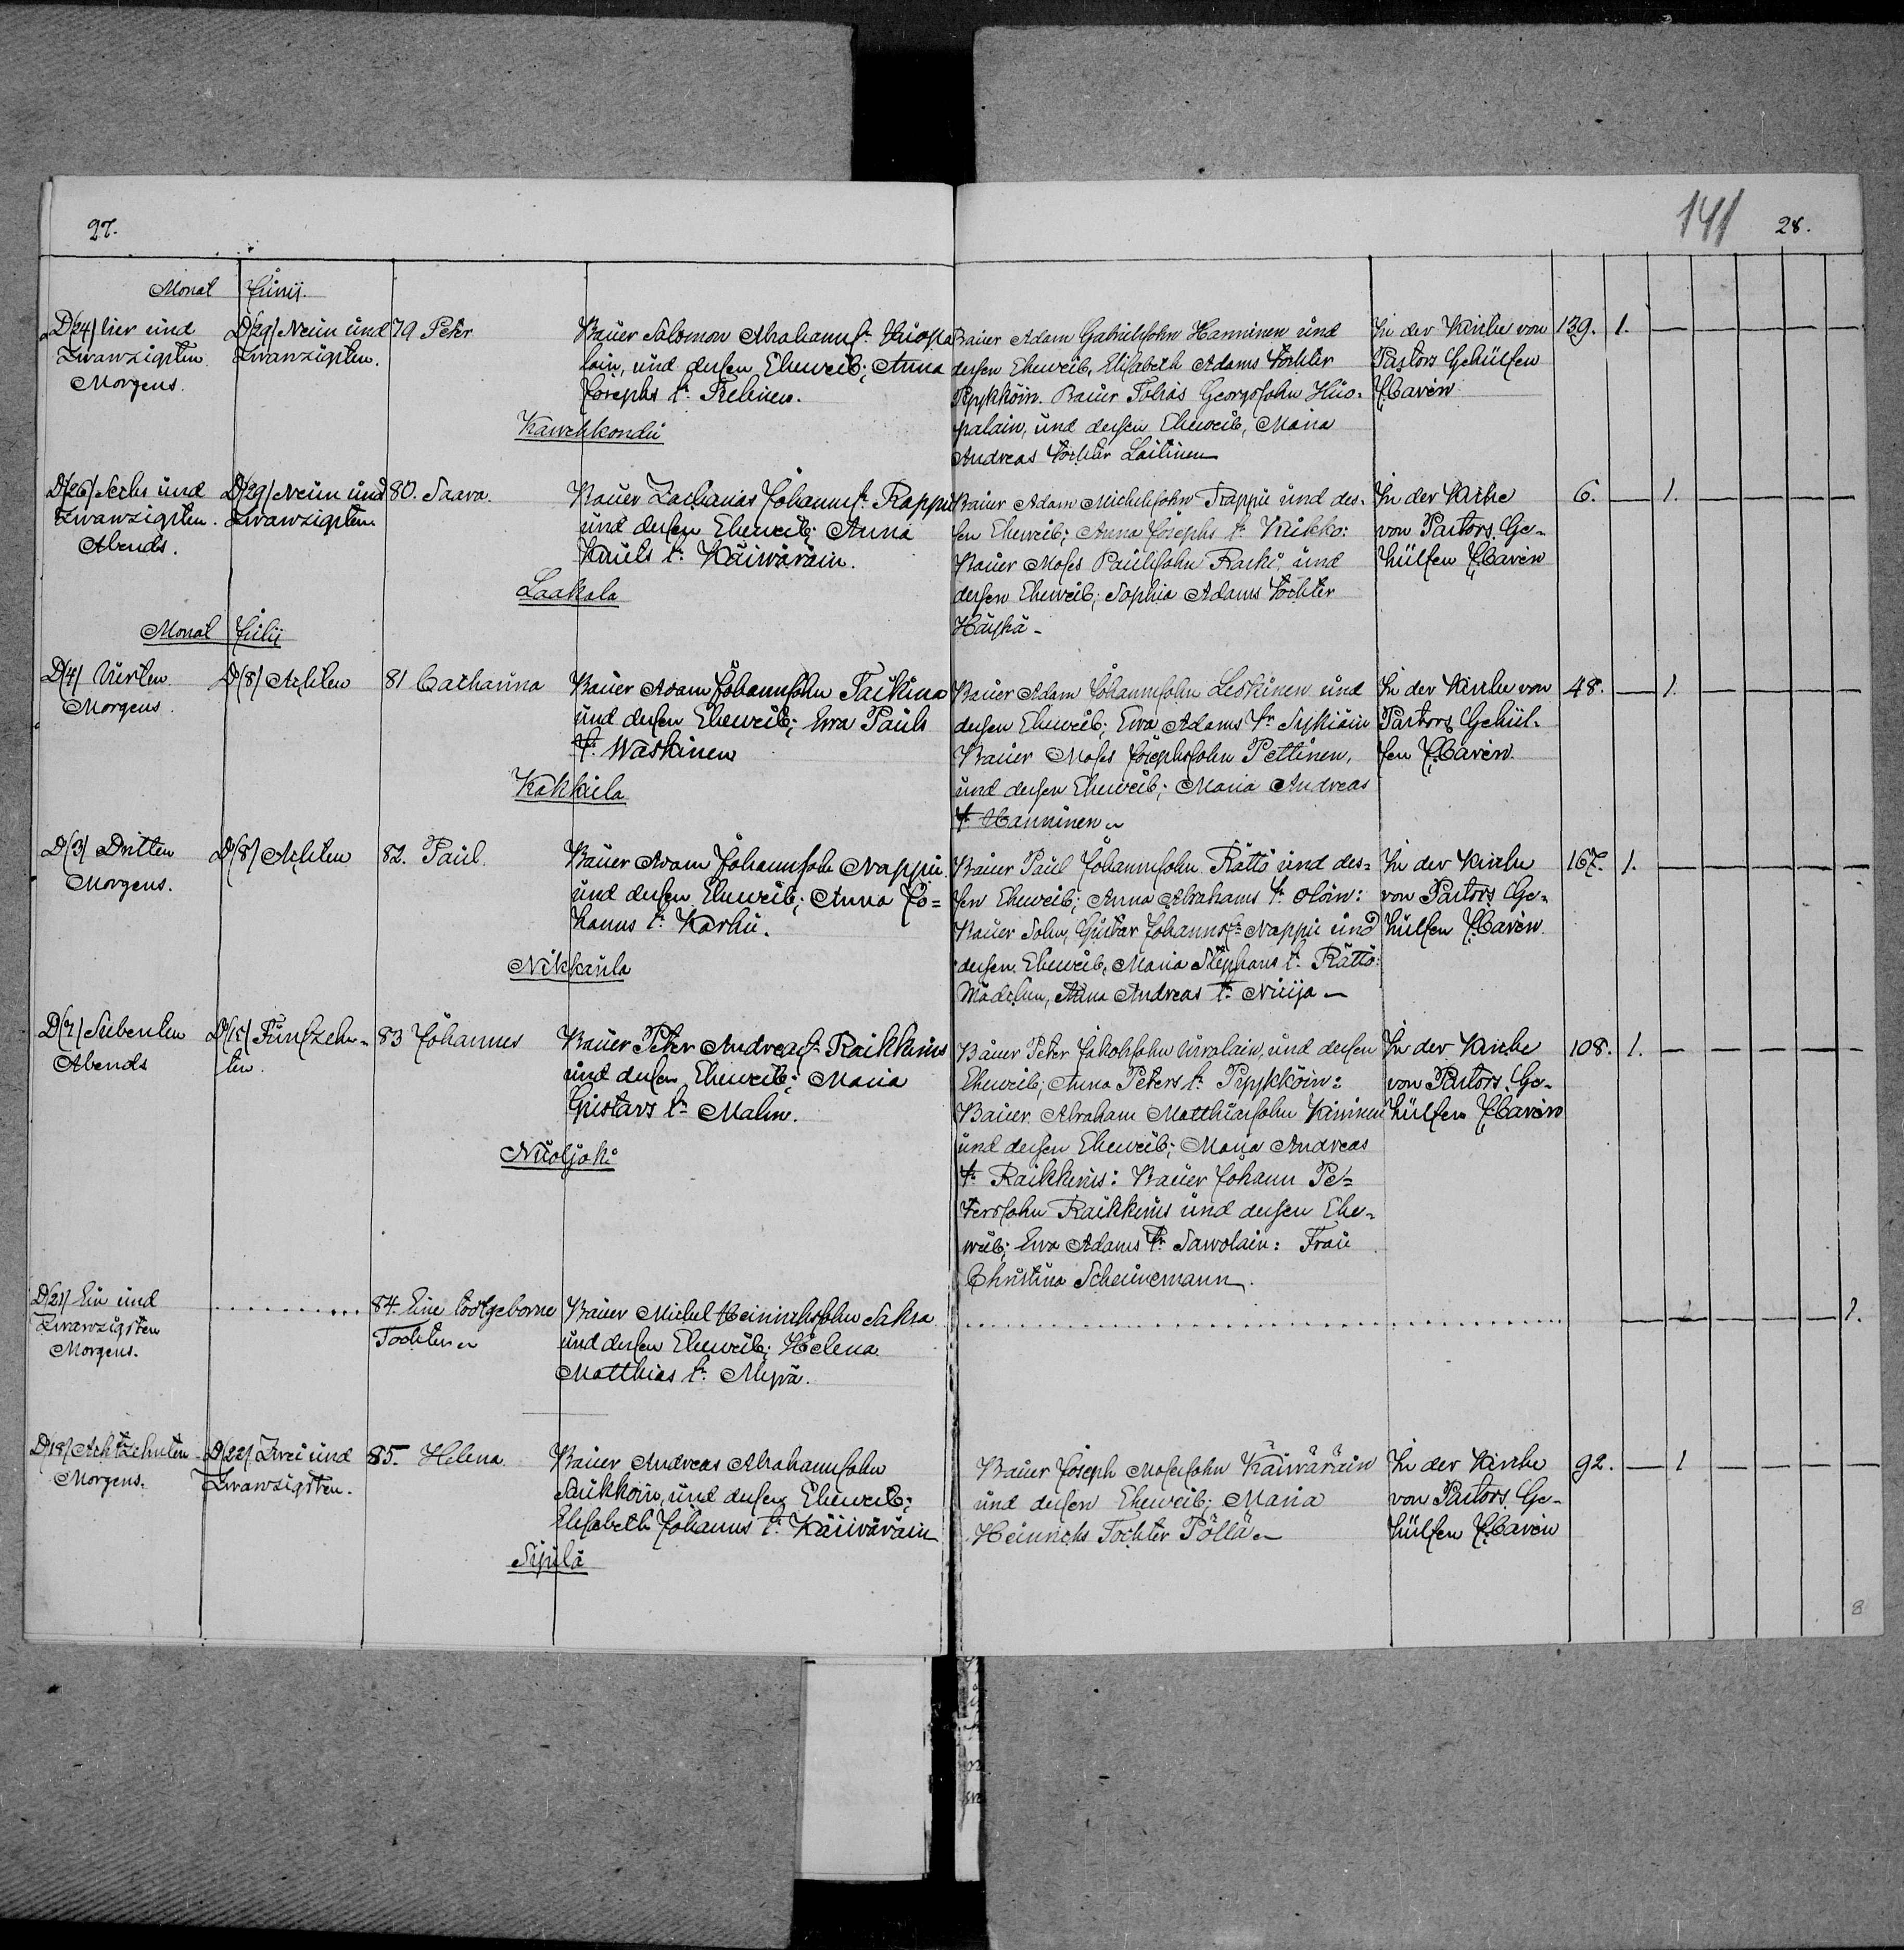 27.
141 28.
Monat Junij.
D/24/ Vier und
Zwanzigsten
Morgens.
D/29/ Neun und
Zwanzigsten.
79 Peter
Bauer Salomon Abrahams. Huopa
lain, und dessen Eheweib; Anna
Josephs t.
Bauer Adam Gabrielsohn Hanninen und
dessen Eheweib, Elisabeth Adams Tochter
Pyykköin. Bauer Tobias Georgssohn Huo-
palain, und dessen Eheweib, Maria
Andreas Tochter Laitinen
In der Kirche von
Pastors Gehülfen
Caven
139. 1.
D/26/ Sechs und
Zwanzigsten.
Abends.
D/29/ Neun und
Zwanzigsten.
80. Saara.
Bauer Zacharias Johanns. Rappu
und dessen Eheweib; Anna
Pauls t. Käiwäräin.
Laakala
Bauer Adam Michelsohn Rappu und des-
sen Eheweib; Anna Josephs t. Kukko:
Bauer Moses Paulsohn Raski, und
dessen Eheweib; Sophia Adams Tochter
Häyhä -
In der Kirche
von Pastors Ge-
hülfen Caven
6. 1.
Monat Julij
D/4/ Vierten
Morgens.
D/8/ Achten
81 Catharina
Bauer Adam Johannsohn Taikina
und dessen Eheweib; Ewa Pauls
t. Waskinen
Kakkula
Bauer Adam Johannsohn Leskinen und
dessen Eheweib; Ewa Adams tr. Sykiäin
Bauer Moses Josephssohn Pettinen,
und dessen Eheweib; Maria Andreas
t. Hanninen
In der Kirche von
Pastors Gehül-
fen Caven.
48. 1.
D/3/ Dritten
Morgens.
D/8/ Achten
82. Paul.
Bauer Adam Johannsohn Nappu
und dessen Eheweib; Anna Jo=
hanns t. Karhu.
Nikkaula
Bauer Paul Johannsohn Rättö und des=
sen Eheweib; Anna Abrahams t. Oloin:
Bauer Sohn, Gustav Johanns. Nappu und
dessen Eheweib, Maria Stephans t. Rättö:
Mädchen, Anna Andreas t.
In der Kirche
von Pastors Ge-
hülfen Caven.
167. 1.
D/7/ Siebenten
Abends
D/15/ Fünfzehn-
ten.
83 Johannes
Bauer Peter Andreas. Raikkinus
und dessen Eheweib; Maria
Gustavs t. Malin.
Nuoljoki
Bauer Peter Jakobsohn Urvalain, und dessen
Eheweib; Anna Peters t. Pyykköin:
Bauer Abraham Matthiassohn Kininen
und dessen Eheweib; Maria Andreas
t. Raikkinus: Bauer Johann Pe=
terssohn Raikkinus und dessen Ehe=
weib; Ewa Adams t. Sawolain: Frau
Christina Scheunemann.
In der Kirche
von Pastors Ge-
hülfen Caven
108. 1.
D/21/ Ein und
Zwanzigsten
Morgens.
84. Eine todtgeborne
Tochter
Bauer Michel Heinrichssohn Saksa
und dessen Eheweib; Helena
Matthias t.
1 1.
D/18/ Achtzehnten
Morgens.
D/22/ Zwei und
Zwanzigsten.
85. Helena.
Bauer Andreas Abrahamsohn
Saukkoin, und dessen Eheweib;
Elisabeth Johanns t. Käiwäräin
Sipilä
Bauer Joseph Mosessohn Käiwäräin
und dessen Eheweib; Maria
Heinrichs Tochter Pöllä
In der Kirche
von Pastors Ge-
hülfen Caven
92. 1
8